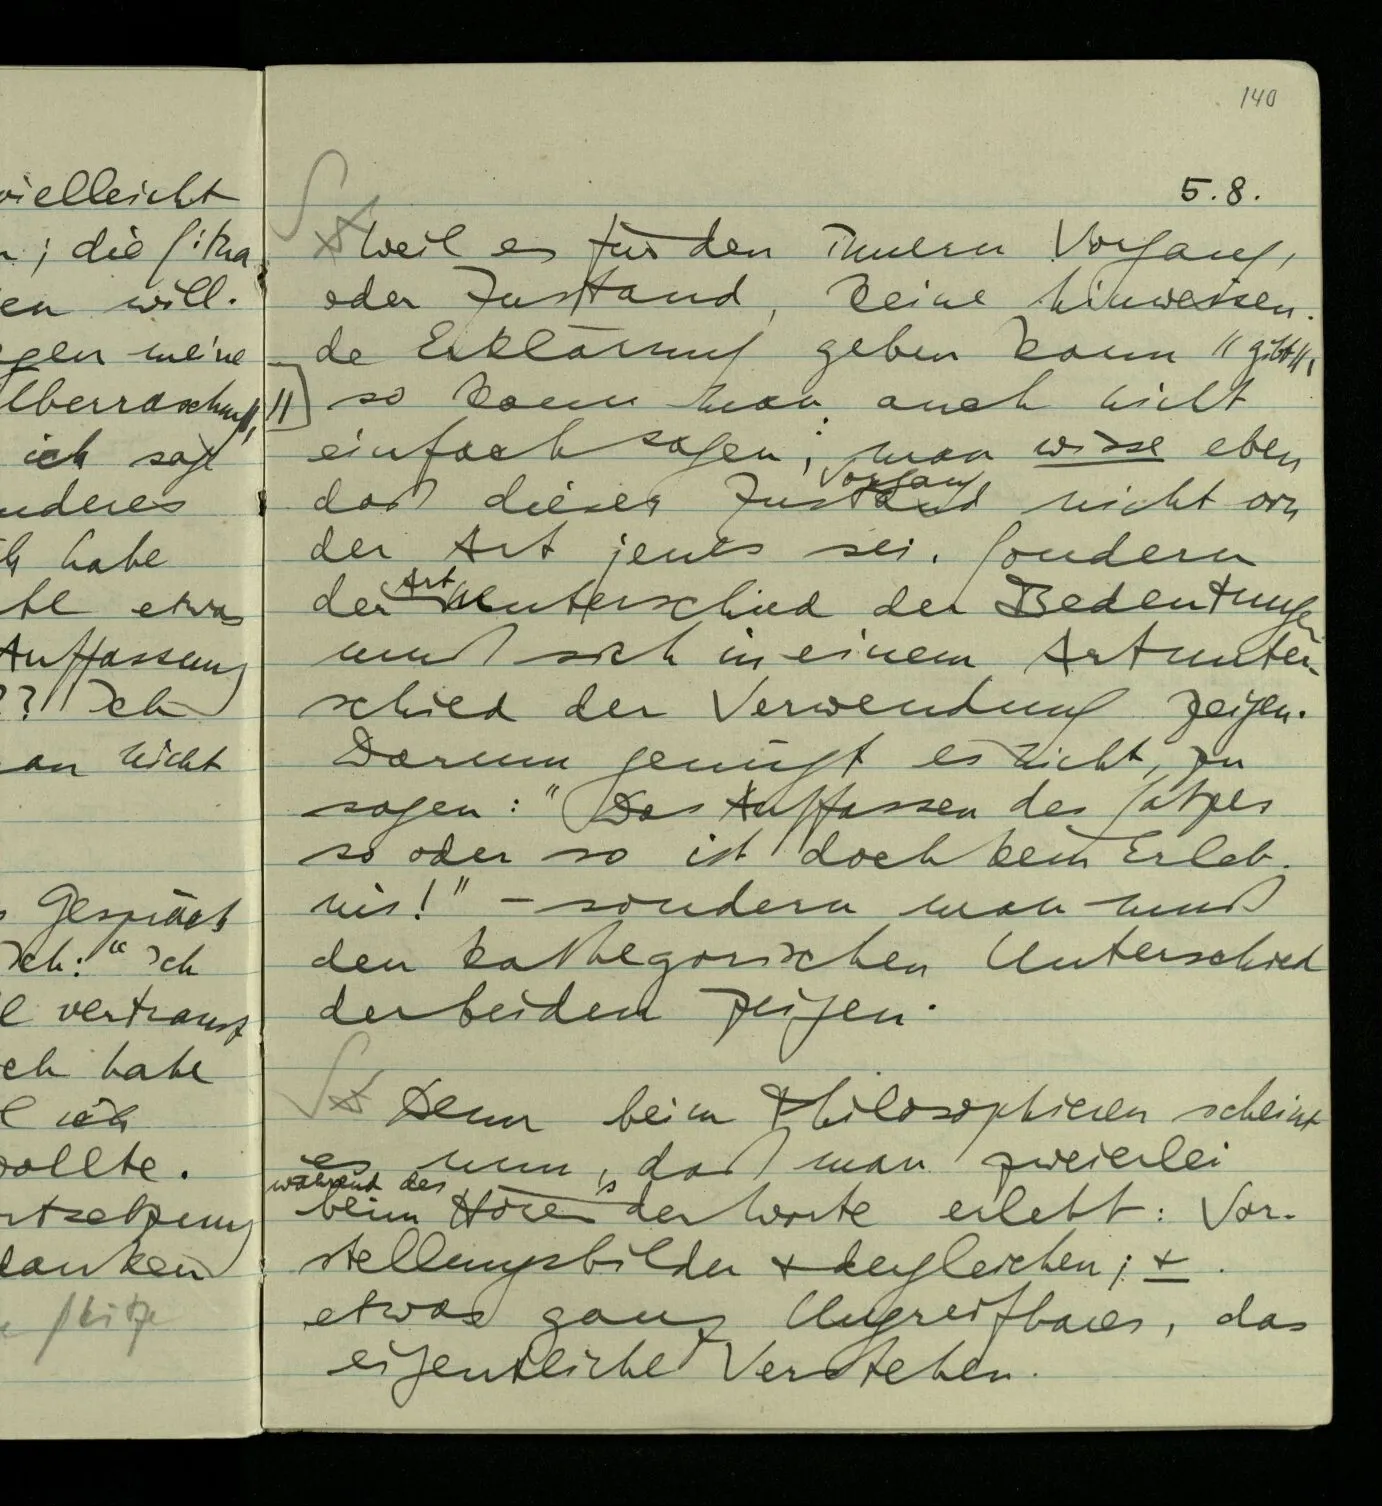 vielleicht
; die Situa
en will.
gen meine
Überraschung,
ich sage
nderes
ch habe
te etwas
Auffassung
?? Ich
an nicht
Gespräch
Ich:" Ich
vertraust
ch habe
ich
wollte.
rtsetzung
danken
Skitze
140
5.8.
Weil es für den innern Vorgang,
oder Zustand, keine hinweisen-
de Erklärung geben kann // gibt //,
// so kann man auch nicht
einfach sagen; man wisse eben
daß dieser Zustand nicht von
Vorgang
der Art jenes sei. Sondern
der Unterschied der Bedeutungen
Art
muß sich in einem Artunter-
schied der Verwendung zeigen.
Darum genügt es nicht, zu
sagen: "Das Auffassen des Satzes
so oder so ist doch kein Erleb-
nis!" – sondern man muß
den kathegorischen Unterschied
der beiden zeigen.
Denn beim Philosophieren scheint
es nun, daß man zweierlei
während des
beim Hören der Worte erlebt: Vor-
s
stellungsbilder + dergleichen; +
etwas ganz Ungreifbares, das
eigentliche Verstehen.